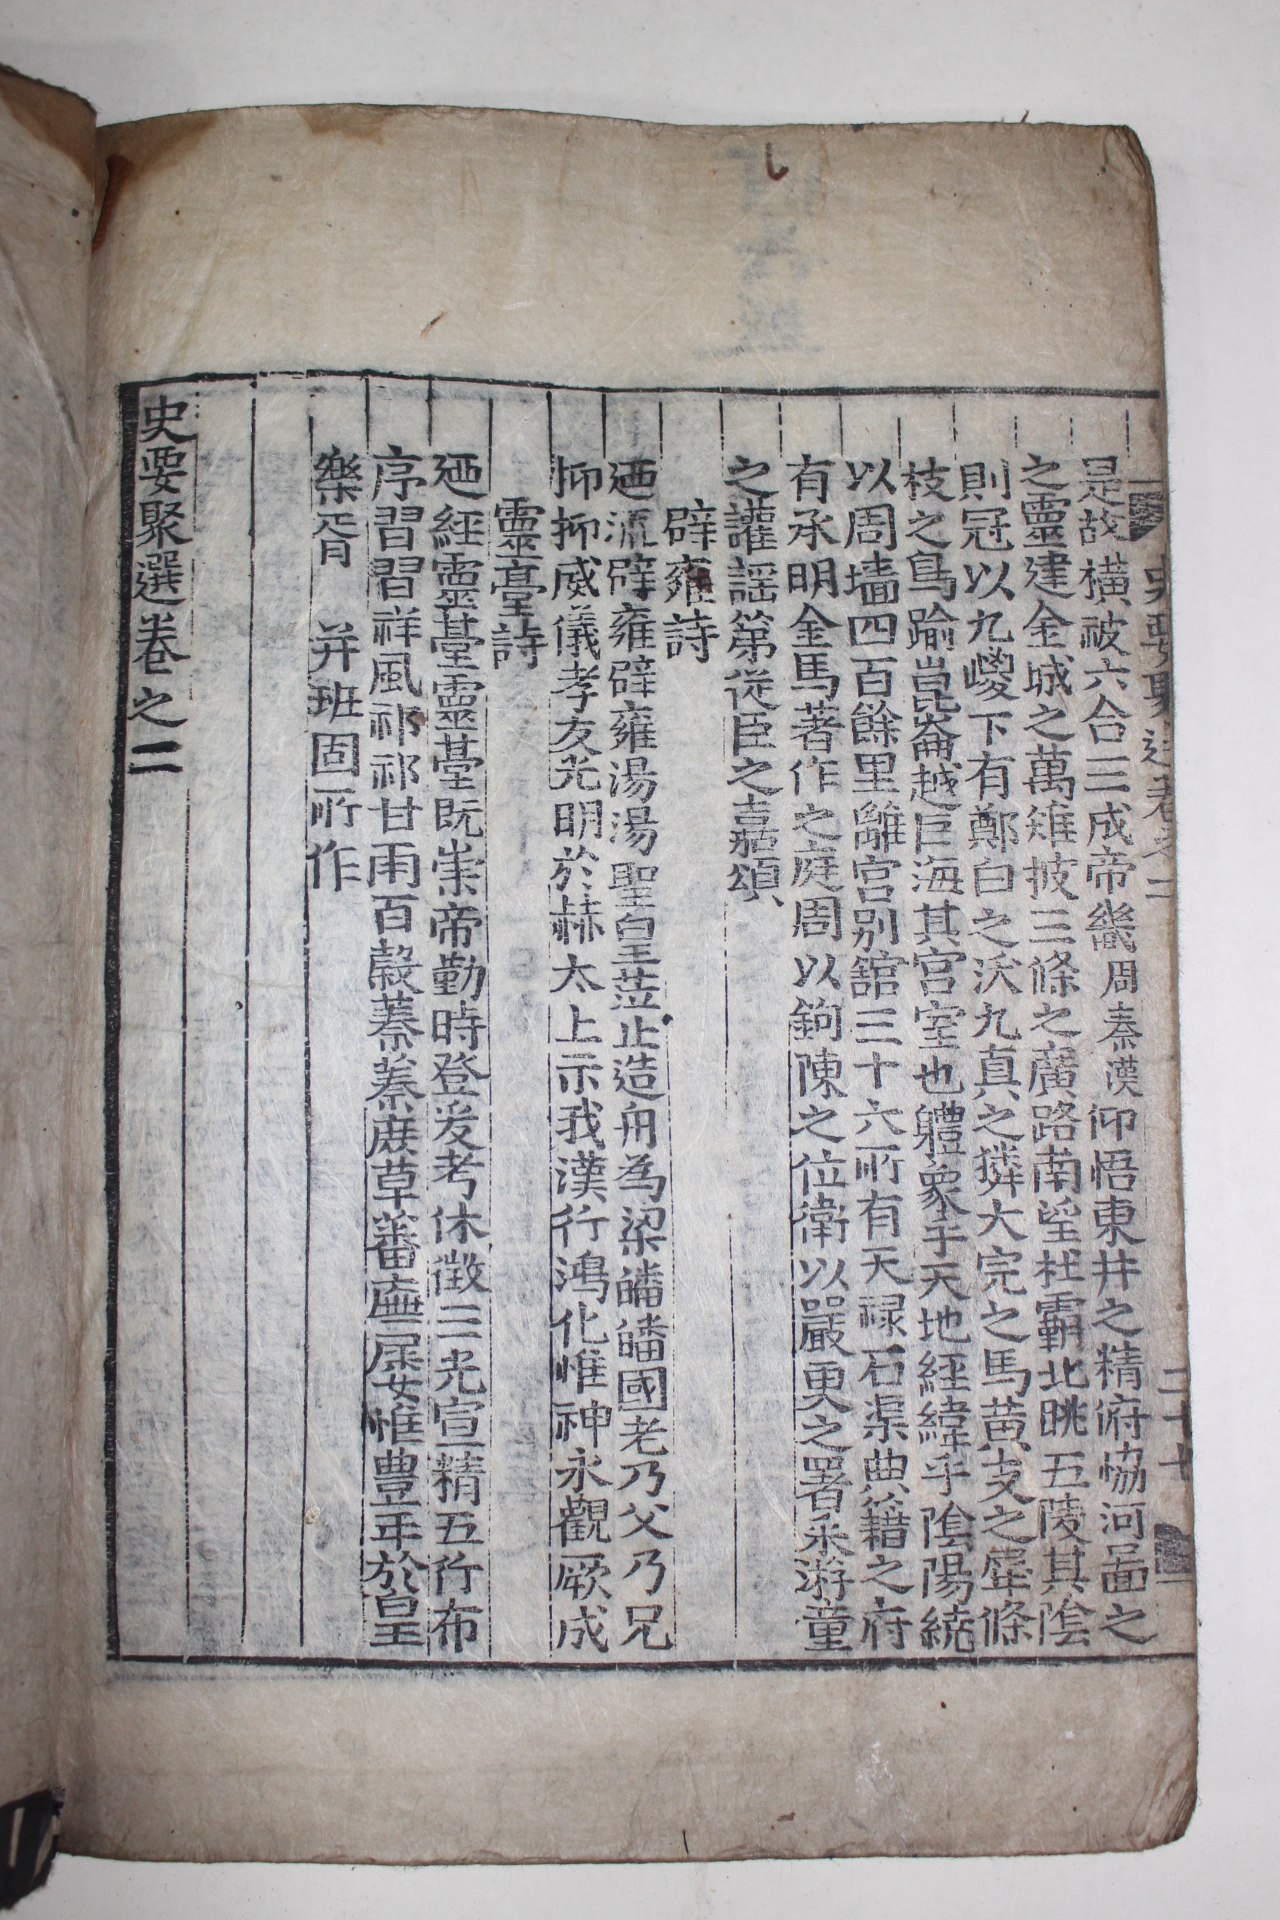 是故橫被六合三成帝畿周秦漢仰悟東井之精府恊河圖之
之靈建金城之萬雉披三條之廣路南望杜霸北眺五陵其陰
則冠以九嵕下有鄭白之沃九真之獜大宛之馬黃支之犀條
枝之鳥踰崑崙越巨海其宮室也軆象乎天地經緯乎陰陽繞
以周墻四百餘里離宮別舘三十六所有天祿石渠典籍之府
有承明金馬著作之庭周以鉤陳之位衛以嚴更之署乘游童
之讙謠第從臣之嘉頌
辟雍詩
廼流辟雍辟雍湯湯聖皇莅止造舟為梁皤皤國老乃父乃兄
抑抑威儀孝友光明於赫太上示我漢行鴻化惟神永觀厥成
靈臺詩
廼經靈臺靈臺既崇帝勤時登爰考休徵三光宣精五行布
序習習祥風祁祁甘雨百糓蓁蓁庶草蕃廡屢惟豊年於皇
樂胥 并班固所作
史要聚選卷之二
史要聚選卷之二 二十七